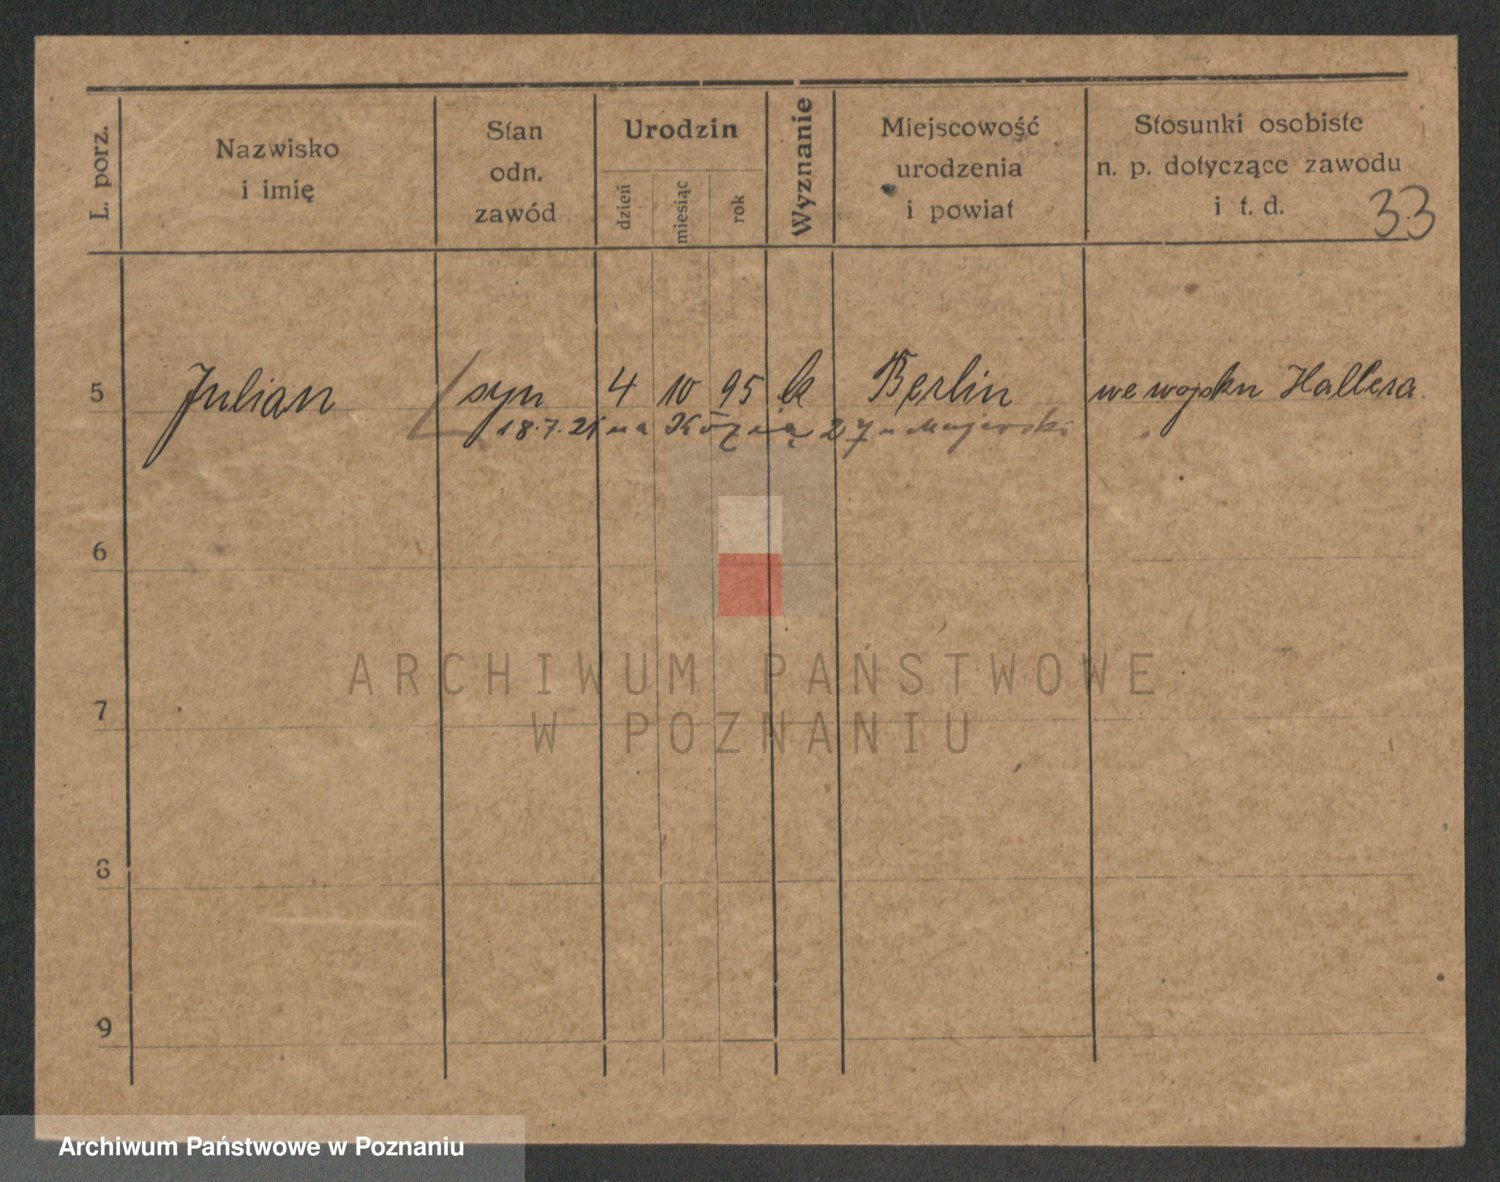 L. porz.
Nazwisko
i imię
Stan
odn.
zawód
Urodzin
dzień
miesiąc
rok
Wyznanie
Miejscowość
urodzenia
i powiat
Stosunki osobiste
n. p. dotyczące zawodu
i t. d.
33
5 Julian syn 4 10 95 k Berlin we wojsku Hallera
18.7.21 na 27 u Majerski
6
7
8
9
ARCHIWUM PAŃSTWOWE
W POZNANIU
Archiwum Państwowe w Poznaniu